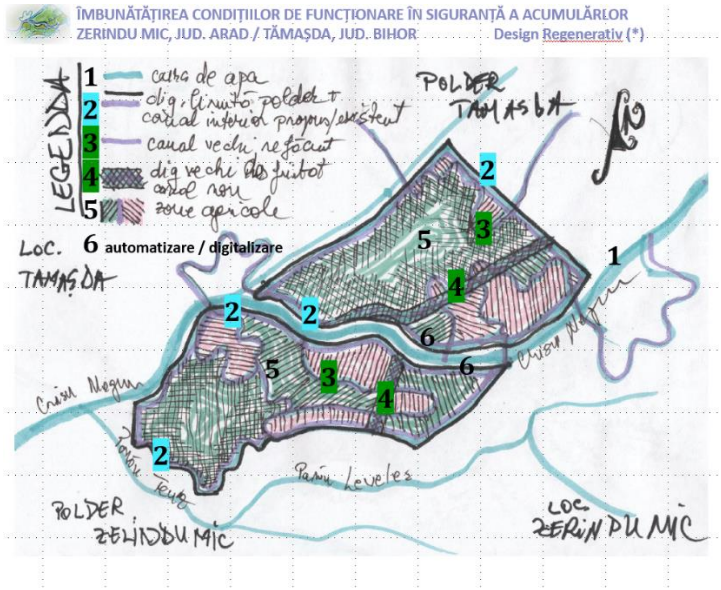 ÎMBUNĂTĂȚIREA CONDIȚIILOR DE FUNCȚIONARE ÎN SIGURANȚĂ A ACUMULĂRLOR
ZERINDU MIC, JUD. ARAD / TĂMAȘDA, JUD. BIHOR Design Regenerativ (*)
LEGENDA
1 cursa de apa
2 dig. limită polder +
canal interior propus/existent
3 canal vechi refăcut
4 dig vechi
canal nou
5 zone agricole
6 automatizare / digitalizare
POLDER
TAMASDA
LOC.
TAMAȘDA
2
3
5
1
4
2
2
6
6
5
3
4
2
Crisu Negru
Crisu Negru
Pariu Leveles
POLDER
ZELINDU MIC
LOC.
ZERINDU MIC